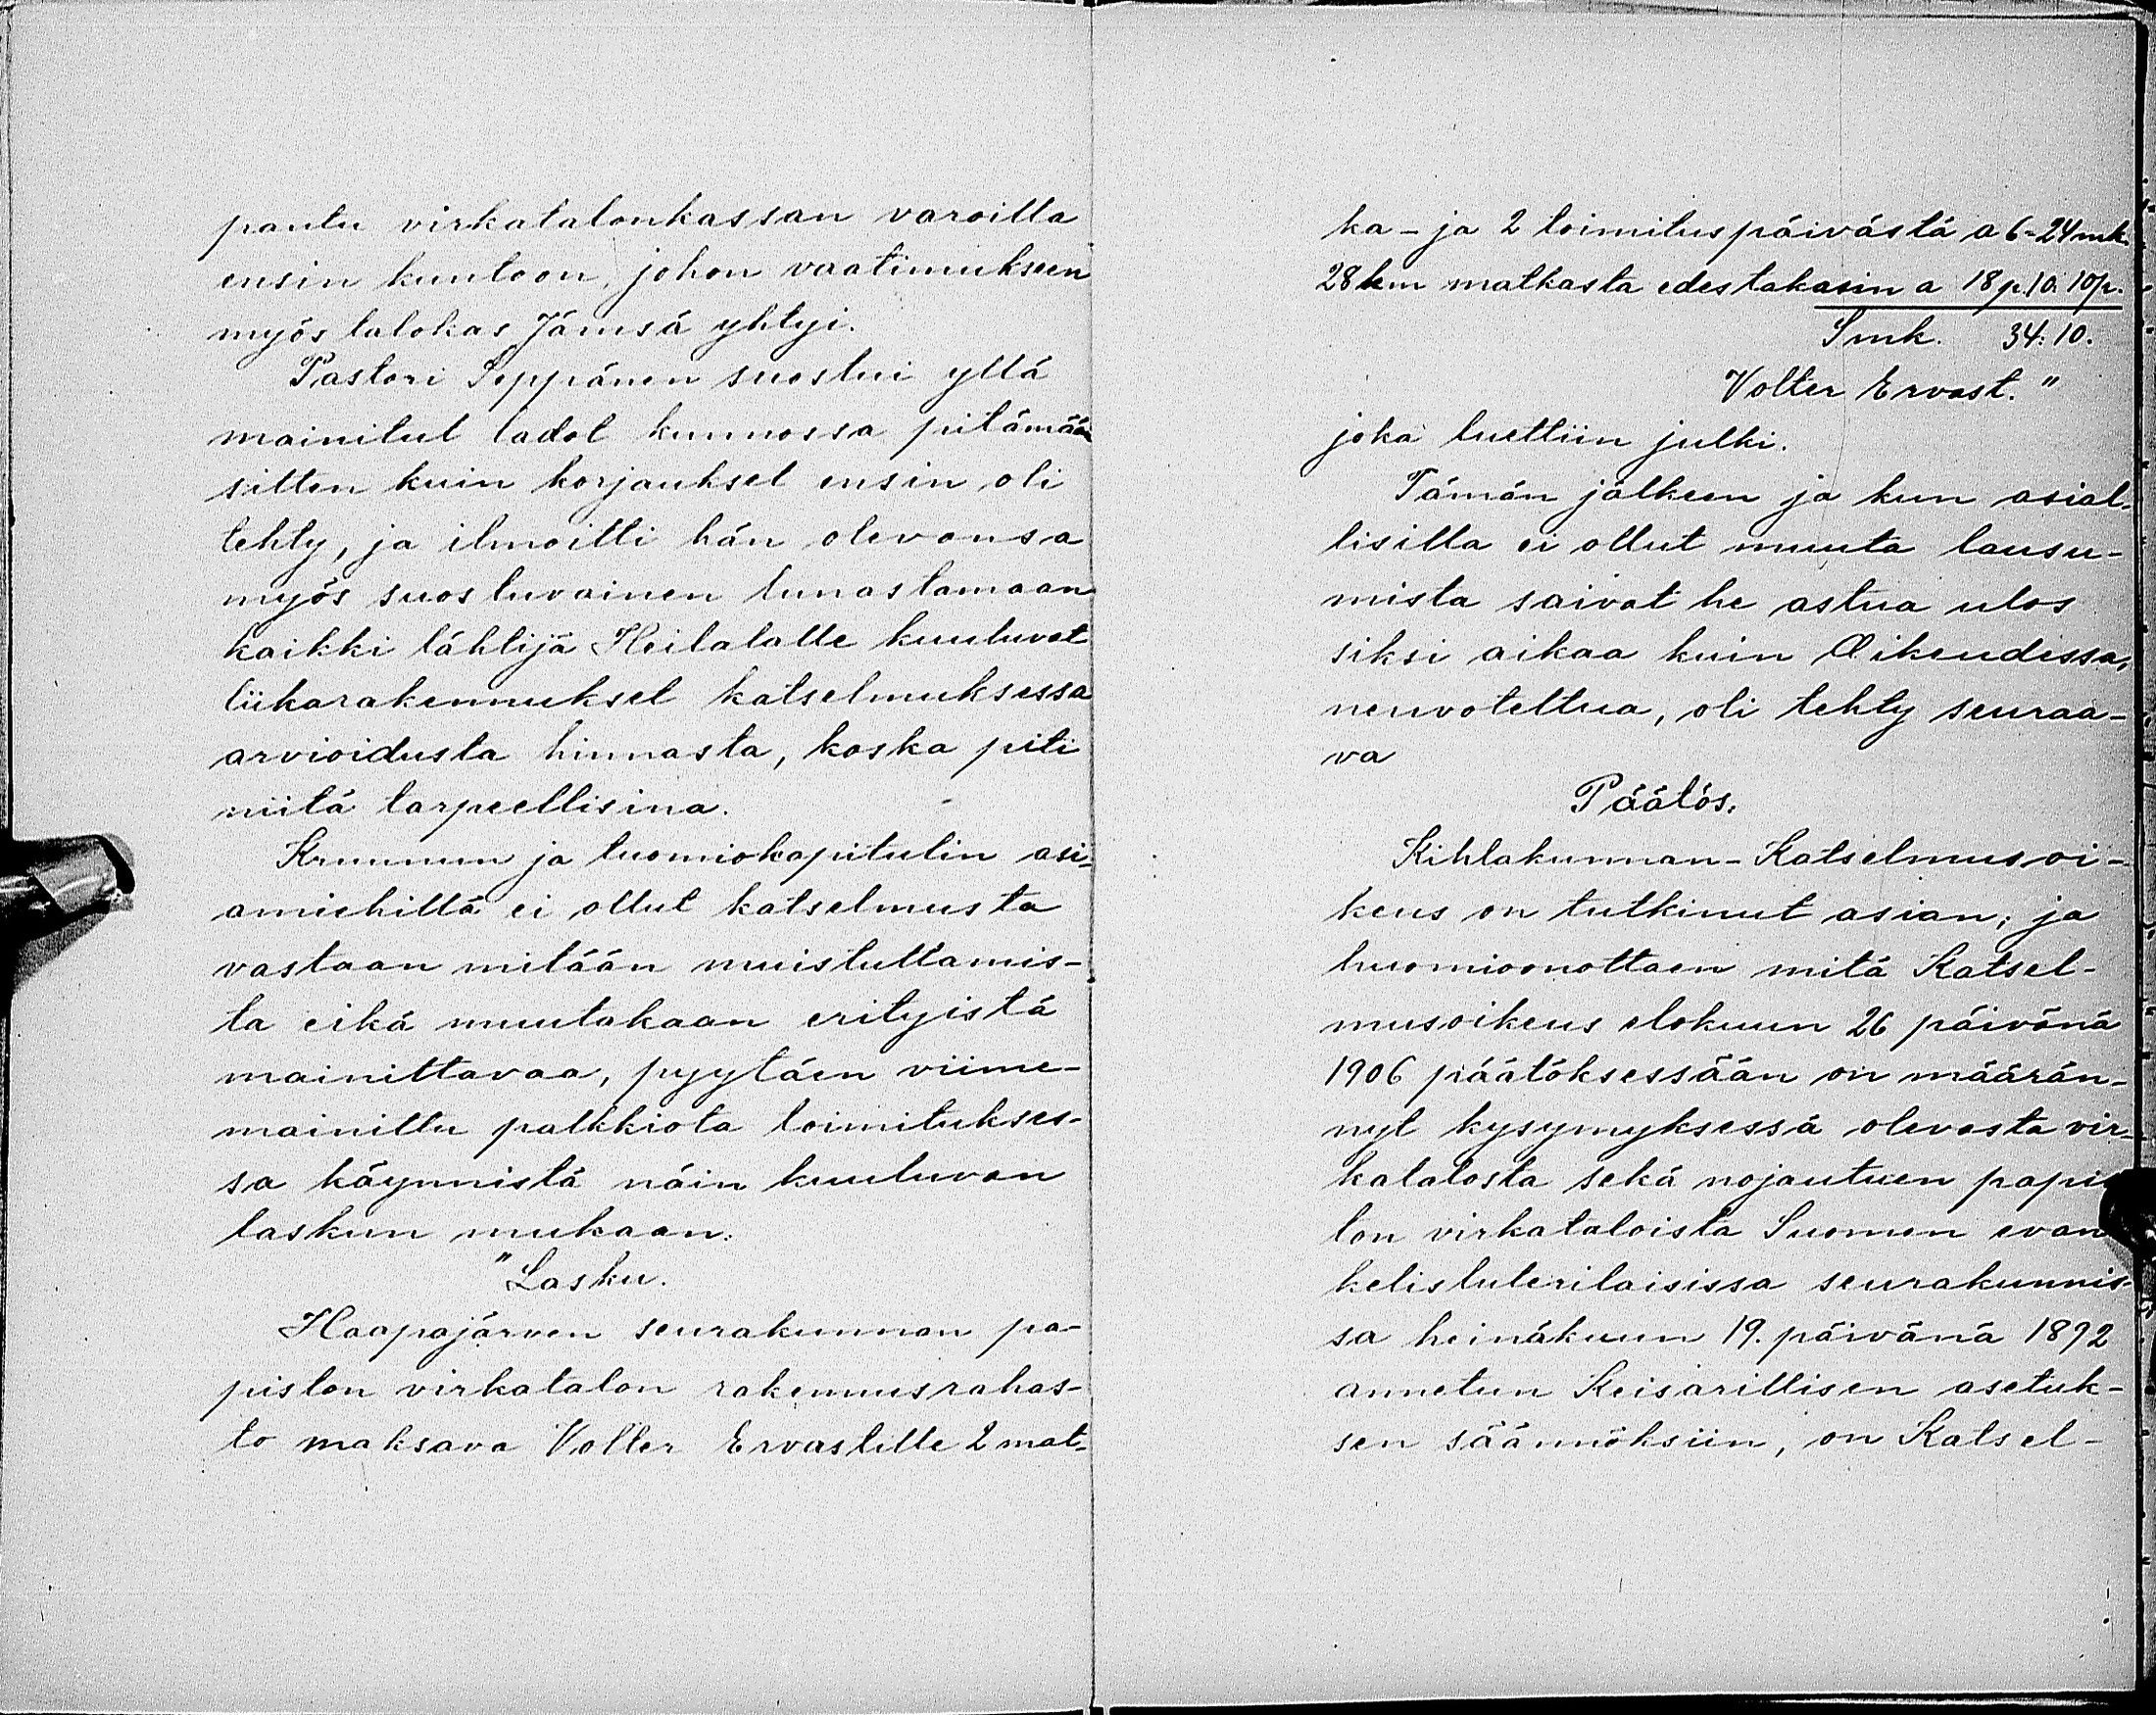 pantu virkatalonkassan varoilla
ensin kuntoon, johon vaatimukseen
myös talokas Jämsä yhtyi.
Pastori Seppänen suostui yllä
mainitut ladot kunnossa pitämään
sitten kuin korjaukset ensin oli
tehty, ja ilmoitti hän olevansa
myös suostuvainen lunastamaan
kaikki lähtijä Heilalalle kuuluvat
liikarakennukset katselmuksessa
arvioidusta hinnasta, koska piti
niitä tarpeellisina.
Kruunun ja tuomiokapitulin asi-
amiehillä ei ollut katselmusta
vastaan mitään muistuttamis-
ta eikä muutakaan erityistä
mainittavaa, pyytäen viime-
mainittu palkkiota toimitukses-
sa käynnistä näin kuuluvan
laskun mukaan:
"Lasku.
Haapajärven seurakunnan pa-
piston virkatalon rakennusrahas-
to maksava Volter Ervastille 2 mat-
ka- ja 2 toimituspäivästä a 6 = 24 mk.
28 km matkasta edestakasin a 18 p. 10: 10 p.
Smk. 34: 10.
Volter Ervast."
joka luettiin julki.
Tämän jälkeen ja kun asial-
lisilla ei ollut muuta lausu-
mista saivat he astua ulos
siksi aikaa kuin Oikeudessa,
neuvoteltua, oli tehty seuraa-
va
Päätös.
Kihlakunnan-Katselmusoi-
keus on tutkinut asian; ja
huomioonottaen mitä Katsel-
musoikeus elokuun 26 päivänä
1906 päätöksessään on määrän-
nyt kysymyksessä olevasta vir-
katalosta sekä nojautuen papis
ton virkataloista Suomen evan
kelisluterilaisissa seurakunnis-
sa heinäkuun 19. päivänä 1892
annetun Keisarillisen asetuk-
sen säännöksiin, on Katsel-